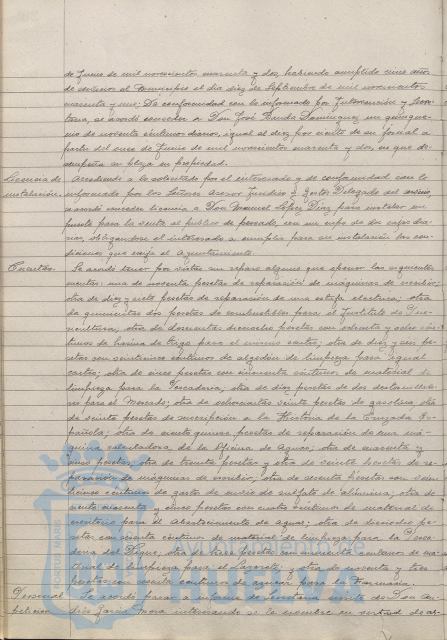 de Junio de mil novecientos cuarenta y dos, habiendo cumplido cinco años
de servicios al Municipio el día diez de Septiembre de mil novecientos
cuarenta y uno: De conformidad con lo informado por Intervención y Secre-
taría, se acordó conceder a Don José Banda Domínguez, un quinque-
nio de noventa céntimos diarios, igual al diez por ciento de su jornal a
partir del once de Junio de mil novecientos cuarenta y dos, en que de-
sempeña su plaza en propiedad.
Licencia de Accediendo a lo solicitado por el interesado y de conformidad con lo
instalación. informado por los Señores Asesor Jurídico y Gestor Delegado del servicio
se acordó conceder licencia a Don Manuel López Díaz para instalar un
puesto para la venta al público de pescado, con un cupo de dos cajas dia-
rias, obligándose el interesado a cumplir para su instalación las con-
diciones que exija el Ayuntamiento.
Cuentas. Se acordó tener por vistas sin reparo alguno que oponer las siguientes
cuentas: una de noventa pesetas de reparación de máquinas de escribir;
otra de diez y siete pesetas de reparación de una estufa eléctrica; otra
de quinientas dos pesetas de combustibles para el Instituto de
cultura; otra de doscientas dieciocho pesetas con ochenta y ocho cén-
timos de harina de trigo para el mismo centro; otra de diez y seis pe-
setas con veinticinco céntimos de algodón de limpieza para igual
centro; otra de once pesetas con cincuenta céntimos de material de
limpieza para la Pescadería; otra de diez pesetas de dos
para el Mercado; otra de ochocientas veinte pesetas de gasolina; otra
de veinte pesetas de suscripción a la Historia de la Cruzada Es-
pañola; otra de cincuenta pesetas de reparación de una má-
quina calculadora de la Oficina de Aguas; otra de cuarenta y
cinco pesetas, otra de treinta pesetas y otra de veinte pesetas de re-
paración de máquinas de escribir; otra de sesenta pesetas con vein-
ticinco céntimos de gastos de envío de sulfato de alúmina; otra de
ciento cuarenta y cinco pesetas con cuatro céntimos de material de
escritorio para el Abastecimiento de Aguas; otra de dieciocho pe-
setas con sesenta céntimos de material de limpieza para la Pesca-
dería del Dique; otra de trece pesetas con cincuenta céntimos de ma-
terial de limpieza para el Lazareto; y otra de noventa y tres
pesetas con sesenta céntimos de azúcar para la Farmacia.
Personal Se acordó pasar a informe de Secretaría escrito de Don An-
peticiones drés García Mora interesando se le nombre en virtud de